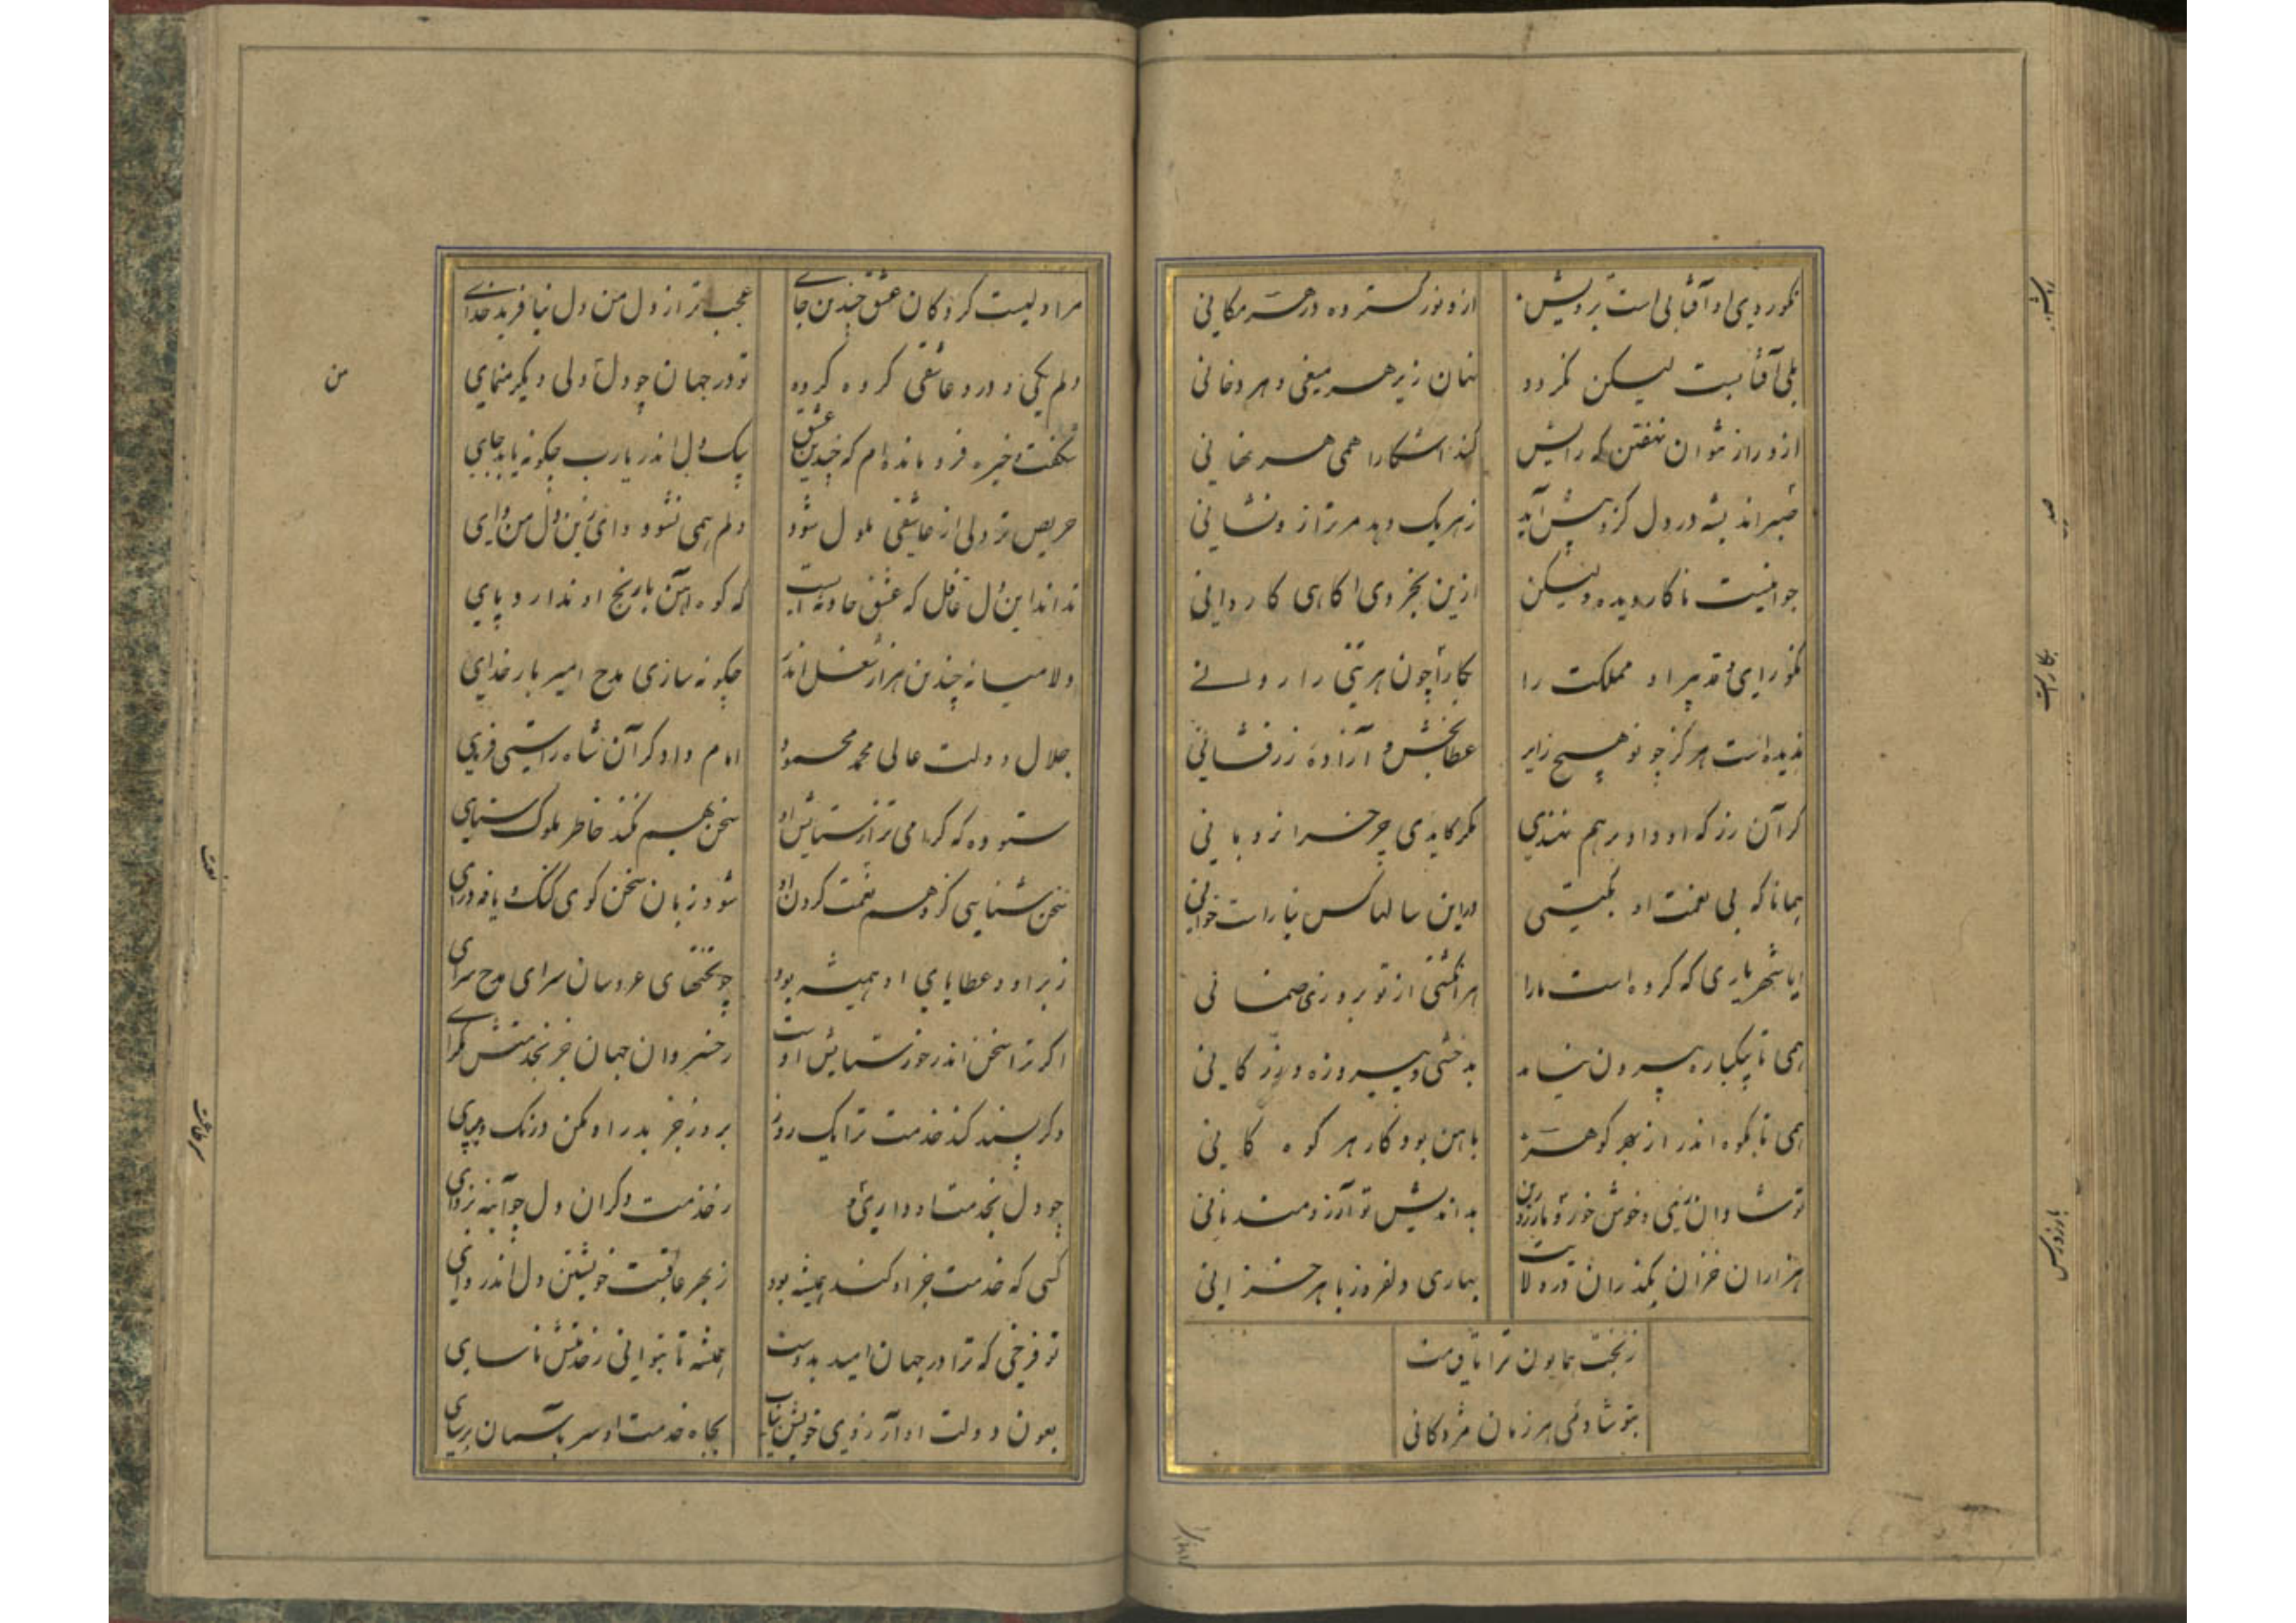 نکوروی او آفتابی است برویش
ازو نور گسترده در هر مکانی
بلی آفتابیست لیکن نگردد
نهان زیر هر میغی و هر دخانی
ازو راز نتوان نهفتن که رایش
کند اشکارا همی هر نهانی
ضمیر اندیشه در دل کزو پیش آید
زهر یک دهد مر ترا زو نشانی
جوانیست ناکاردیده ولیکن
ازین بخردی اکاهی کاردانی
نکو رای و تدبیر او مملکت را
بکارآ چون هر تنی را روانی
ندیده است هرگز چو تو هیچ زایر
عطابخش و آزاده زرفشانی
گر آن زر که او داد بر هم نهندی
مگر کایدی چرخ را نردبانی
همانا که بی نعمت او بگیتی
درین سالها کس نیاراست خوانی
ایا شهریاری که کرده است ما را
هر انگشتی از تو بروزی ضمانی
همی تا بیکباره بیرون نیامد
بدخشی و پیروزه و زر کانی
همی تا بکوه اندر از بهر گوهر
باهن بود کار هر کوه کانی
تو شادان زی و خوش خور و بارزو رس
بداندیش تو آرزومند نانی
هزاران خزان بگذران در ولایت
بهاری دلفروز با هر خزانی
ز بخت همایون ترا تا قیامت
بنو شادئی هر زمان مژدگانی
مرا دلیست گروگان عشق چندین جای
عجب تر از دل من دل نیافرید خدای
دلم یکی و درو عاشقی گروه گروه
تو در جهان چو دل آ دلی دیگر بنمای
شگفت و خیره فرو مانده ام که چندین عشق
بیک دل اندر یارب چگونه یابد جای
حریص تر دلی از عاشقی ملول شود
دلم همی نشود وای زین دل من وای
نداند این دل غافل که عشق حادثه ایست
که کوه آهن با رنج او ندارد پای
دلا میانه چندین هزار شغل اندر
چگونه سازی مدح امیر بار خدای
جلال دولت عالی محمد محمود
امام دادگر آن شاه راستی فرمای
ستوده که گرامی تر از ستایش او
سخن بهم نکند خاطر ملوک ستای
سخن شناسی کز وهم نعمت کردن او
شود زبان سخن گوی گنگ و یافه درای
ز بر او و عطایای او همیشه بود
چو تختهای عروسان سرای مدح سرای
اگر ترا سخن اندر خور ستایش اوست
ز خسروان جهان جز بخدمتش مگرای
وگر پسند کند خدمت ترا یک روز
بروز جز بدر او مکن درنگ و مپای
چو دل بخدمت او داری و
ز خدمت دگران دل چو آینه بزدای
کسی که خدمت جز او کند همیشه بود
ز بهر عاقبت خویشتن دل اندر وای
تو فرخی که ترا در جهان امید بدوست
همیشه تا بتوانی ز خدمتش ماسای
بعون دولت او آرزوی خویش بیاب
بجاه خدمت او سر بآسمان برسای
من